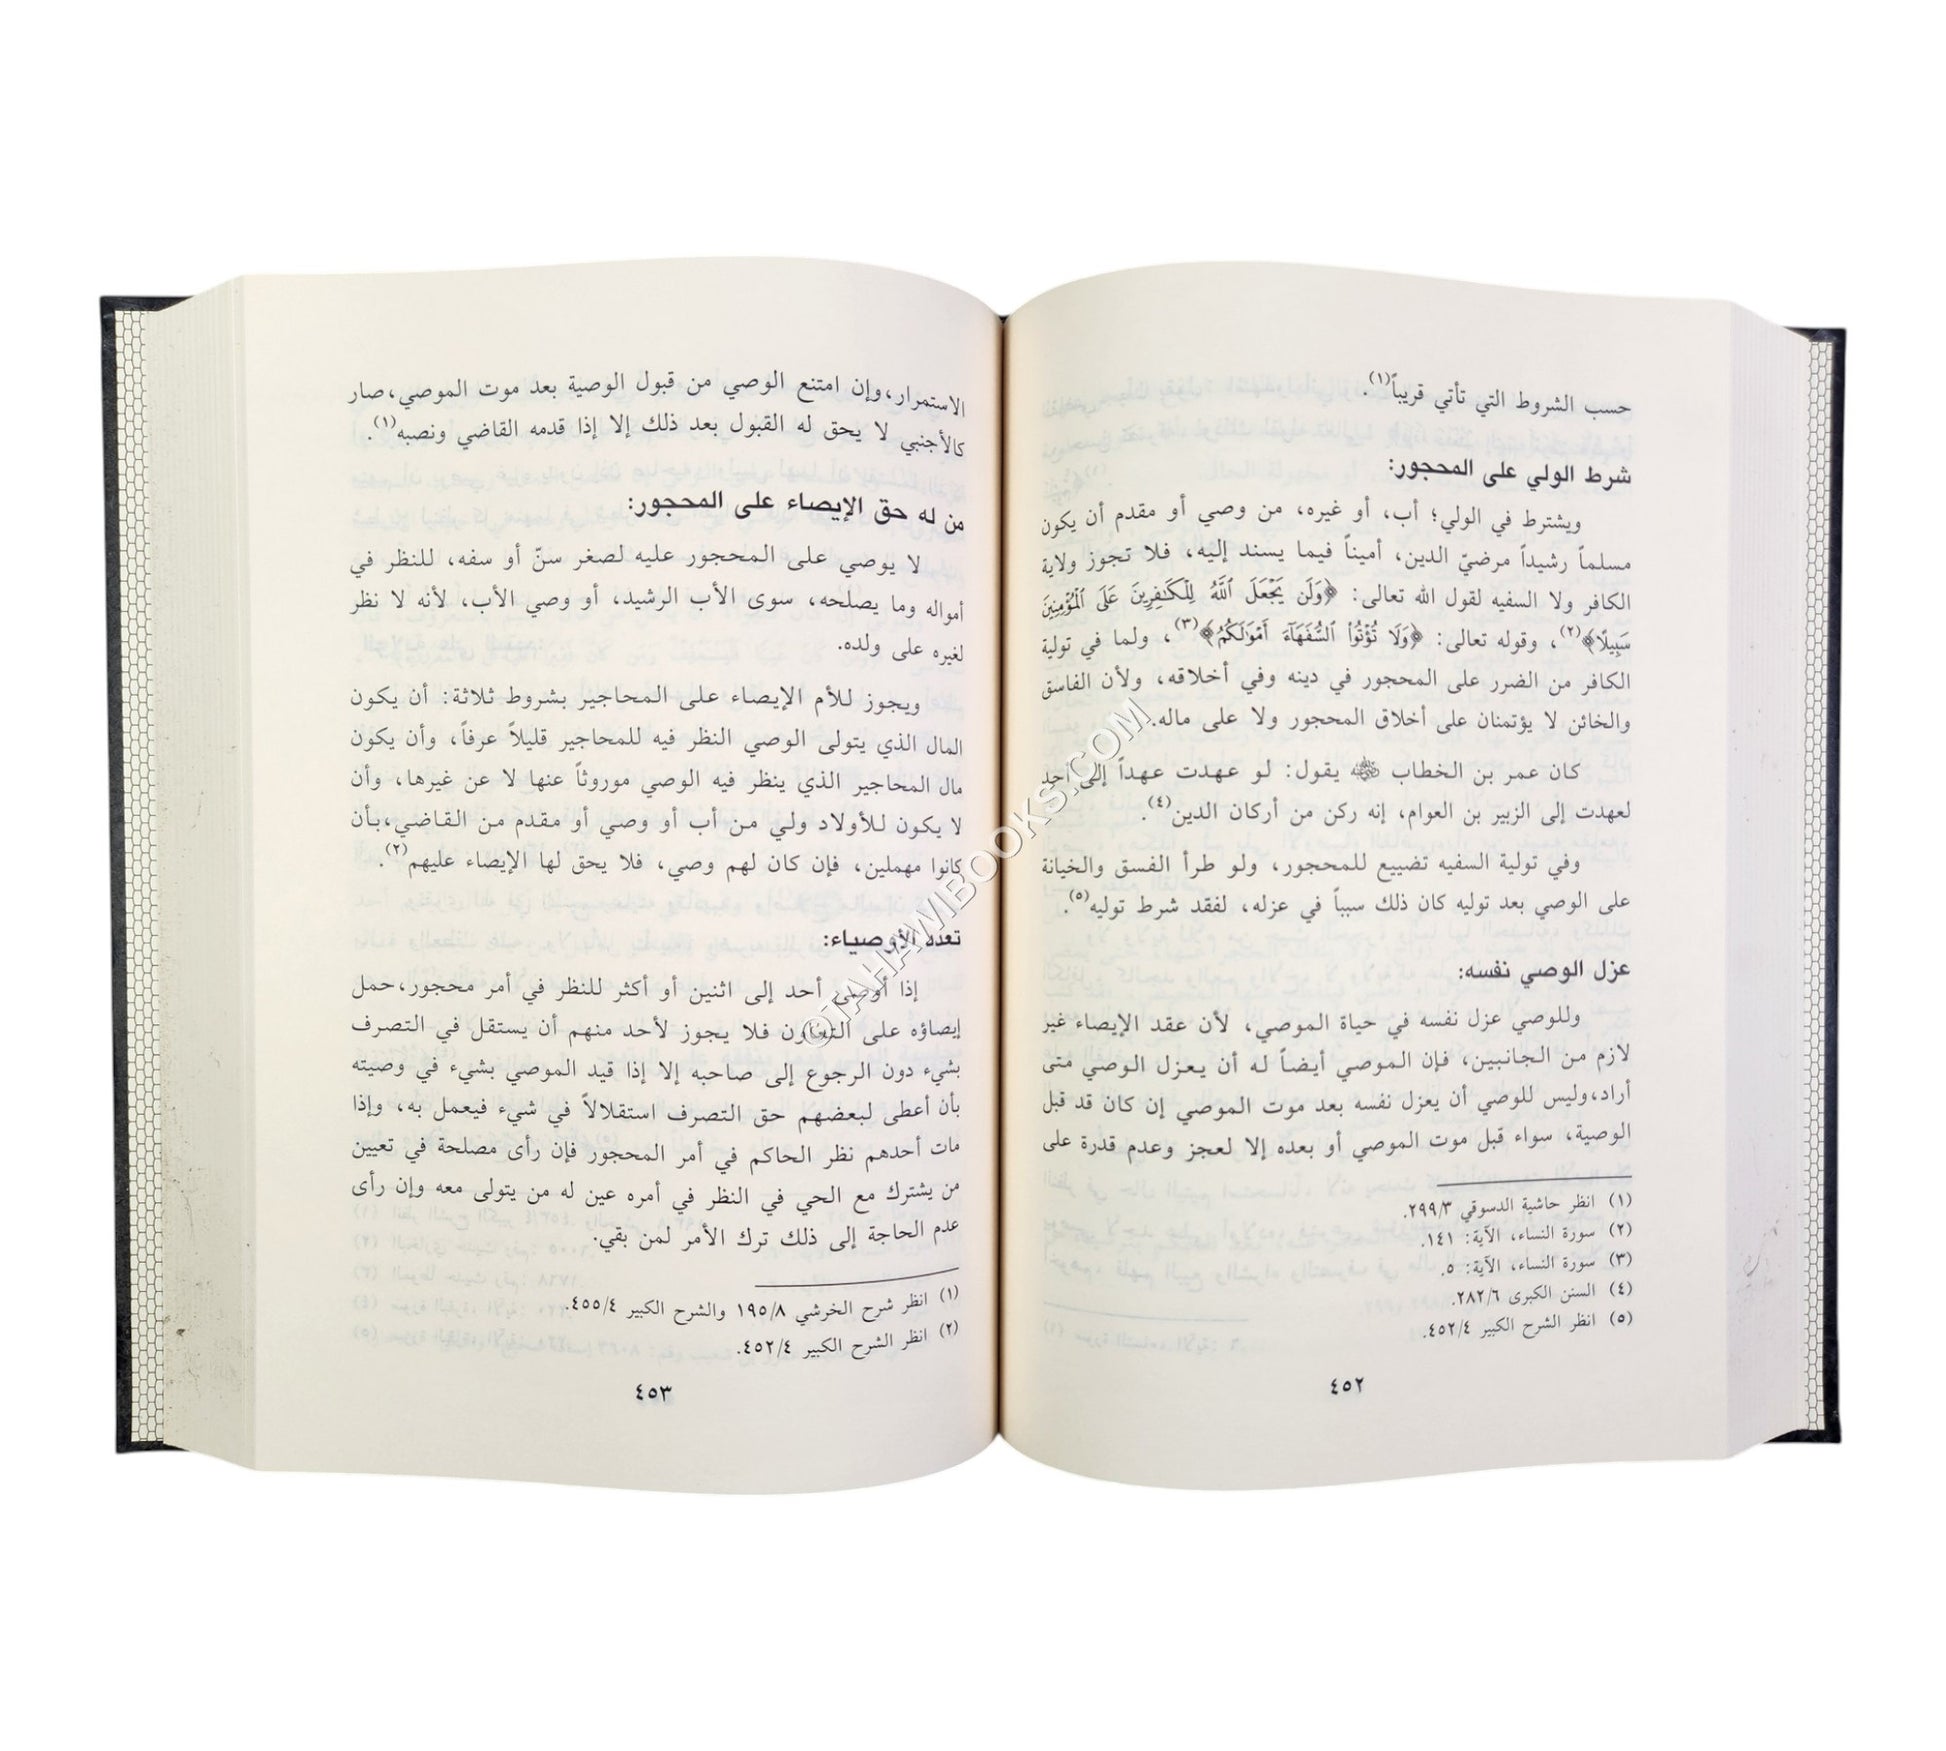 حسب الشروط التي تأتي قريباً(١).
شرط الولي على المحجور:
ويشترط في الولي؛ أب، أو غيره، من وصي أو مقدم أن يكون
مسلماً رشيداً مرضيّ الدين، أميناً فيما يسند إليه، فلا تجوز ولاية
الكافر ولا السفيه لقول الله تعالى: ﴿وَلَن يَجْعَلَ ٱللَّهُ لِلْكَٰفِرِينَ عَلَى ٱلْمُؤْمِنِينَ
سَبِيلًا﴾(٢)، وقوله تعالى: ﴿وَلَا تُؤْتُوا۟ ٱلسُّفَهَآءَ أَمْوَٰلَكُمُ﴾(٣)، ولما في تولية
الكافر من الضرر على المحجور في دينه وفي أخلاقه، ولأن الفاسق
والخائن لا يؤتمنان على أخلاق المحجور ولا على ماله.
كان عمر بن الخطاب ﷺ يقول: لو عهدت عهداً إلى أحد
لعهدت إلى الزبير بن العوام، إنه ركن من أركان الدين(٤).
وفي تولية السفيه تضييع للمحجور، ولو طرأ الفسق والخيانة
على الوصي بعد توليه كان ذلك سبباً في عزله، لفقد شرط توليه(٥).
عزل الوصي نفسه:
وللوصي عزل نفسه في حياة الموصي، لأن عقد الإيصاء غير
لازم من الجانبين، فإن الموصي أيضاً له أن يعزل الوصي متى
أراد،وليس للوصي أن يعزل نفسه بعد موت الموصي إن كان قد قبل
الوصية، سواء قبل موت الموصي أو بعده إلا لعجز وعدم قدرة على
(١) انظر حاشية الدسوقي ٢٩٩/٣.
(٢) سورة النساء، الآية: ١٤١.
(٣) سورة النساء، الآية: ٥.
(٤) السنن الكبرى ٢٨٢/٦.
(٥) انظر الشرح الكبير ٤٥٢/٤.
٤٥٢
الاستمرار،وإن امتنع الوصي من قبول الوصية بعد موت الموصي،صار
كالأجنبي لا يحق له القبول بعد ذلك إلا إذا قدمه القاضي ونصبه(١).
من له حق الإيصاء على المحجور:
لا يوصي على المحجور عليه لصغر سنّ أو سفه، للنظر في
أمواله وما يصلحه، سوى الأب الرشيد، أو وصي الأب، لأنه لا نظر
لغيره على ولده.
ويجوز للأم الإيصاء على المحاجير بشروط ثلاثة: أن يكون
المال الذي يتولى الوصي النظر فيه للمحاجير قليلاً عرفاً، وأن يكون
مال المحاجير الذي ينظر فيه الوصي موروثاً عنها لا عن غيرها، وأن
لا يكون للأولاد ولي من أب أو وصي أو مقدم من القاضي،بأن
كانوا مهملين، فإن كان لهم وصي، فلا يحق لها الإيصاء عليهم(٢).
تعدد الأوصياء:
إذا أوصى أحد إلى اثنين أو أكثر للنظر في أمر محجور،حمل
إيصاؤه على التعاون فلا يجوز لأحد منهم أن يستقل في التصرف
بشيء دون الرجوع إلى صاحبه إلا إذا قيد الموصي بشيء في وصيته
بأن أعطى لبعضهم حق التصرف استقلالاً في شيء فيعمل به، وإذا
مات أحدهم نظر الحاكم في أمر المحجور فإن رأى مصلحة في تعيين
من يشترك مع الحي في النظر في أمره عين له من يتولى معه وإن رأى
عدم الحاجة إلى ذلك ترك الأمر لمن بقي.
(١) انظر شرح الخرشي ١٩٥/٨ والشرح الكبير ٤٥٥/٤.
(٢) انظر الشرح الكبير ٤٥٢/٤.
٤٥٣
©TAHAWIBOOKS.COM